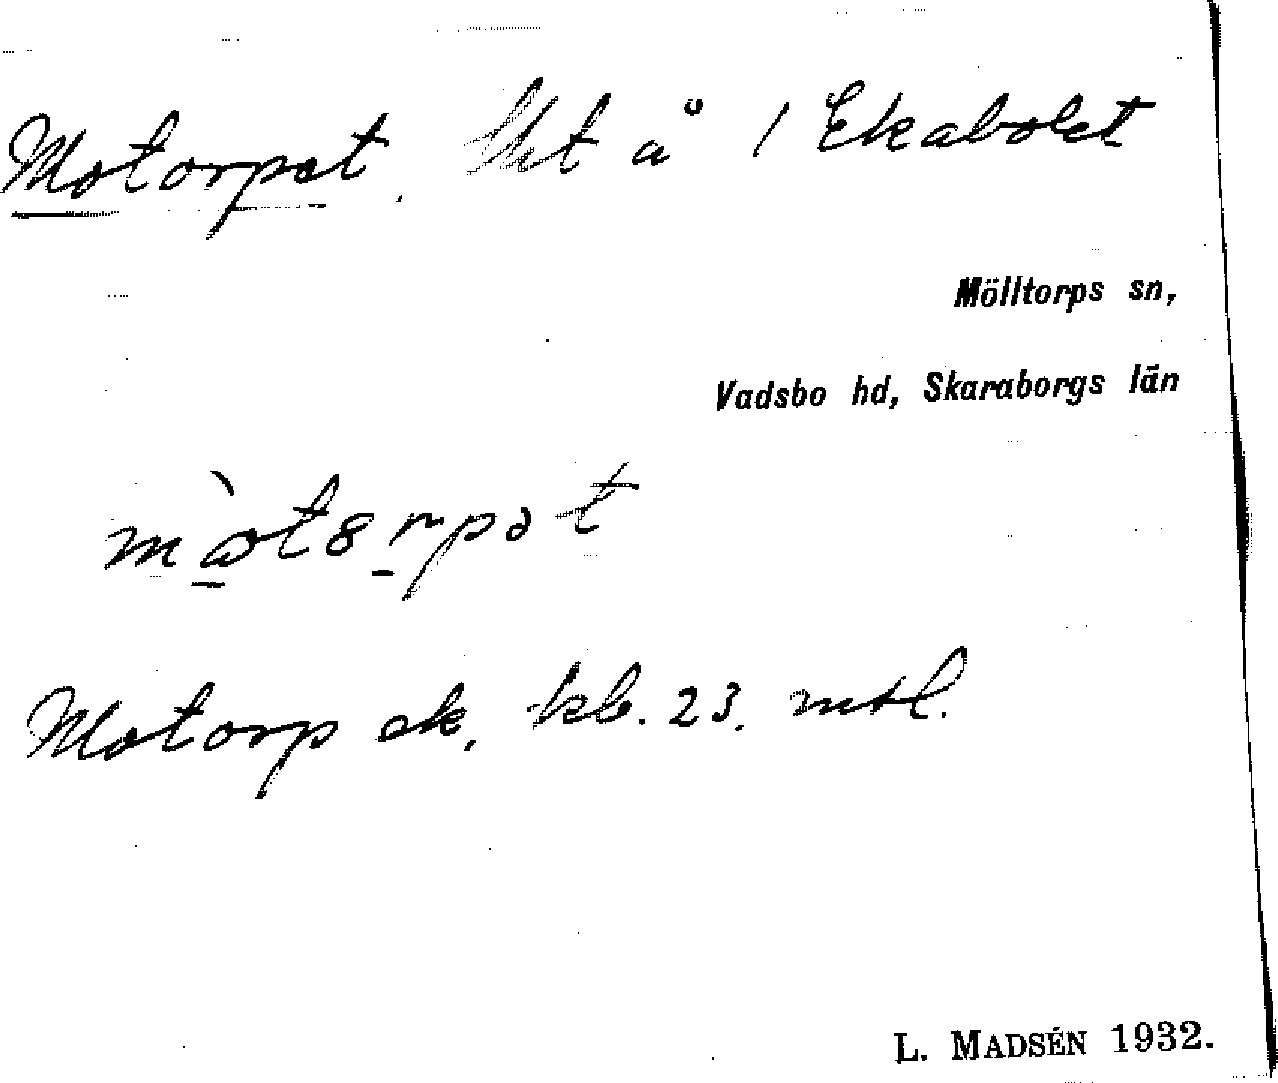 Motorpet. lht å 1 Ekabolet
Mölltorps sn,
Vadsbo hd, Skaraborgs län
Motorp ek. kb. 23. mtl.
L. MADSÉN 1932.